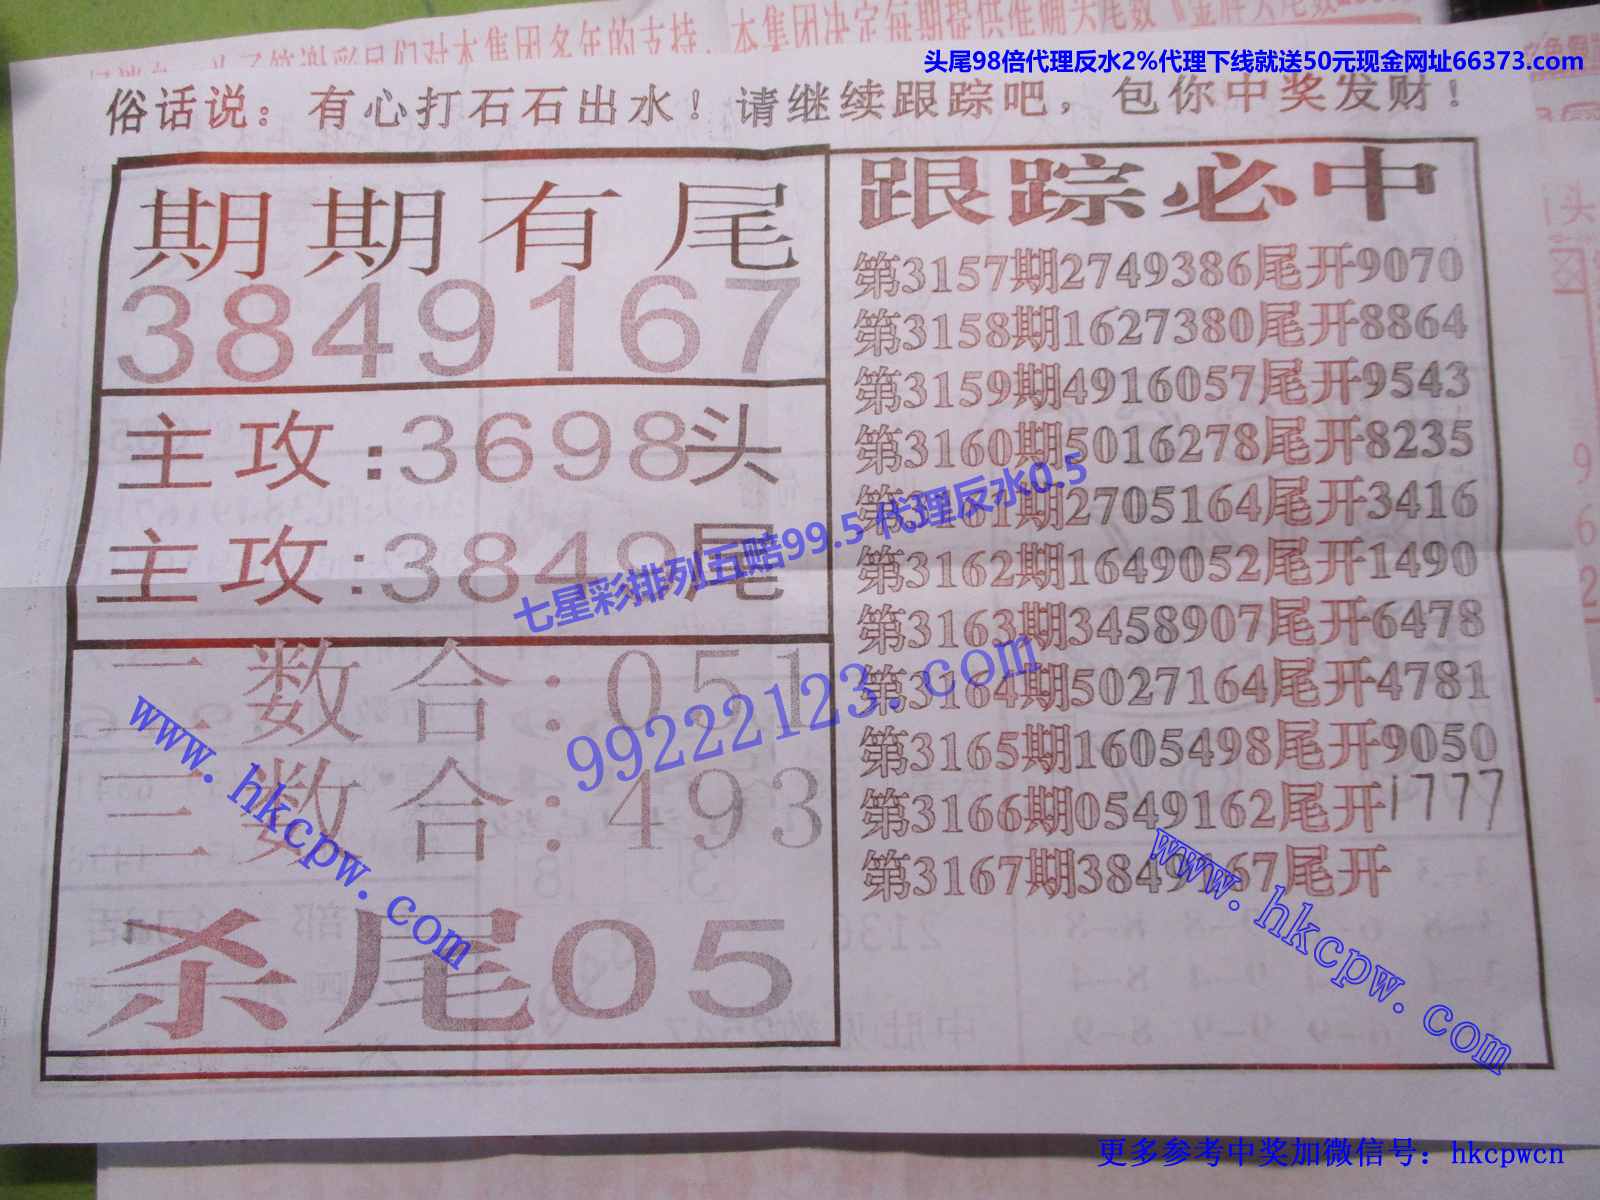 头尾98倍代理反水2%代理下线就送50元现金网址66373.com
俗话说：有心打石石出水！请继续跟踪吧，包你中奖发财！
期期有尾
3849167
主攻:3698头
主攻:3849尾
二数合:051
三数合:493
杀尾05
跟踪必中
第3157期2749386尾开9070
第3158期1627380尾开8864
第3159期4916057尾开9543
第3160期5016278尾开8235
第3161期2705164尾开3416
第3162期1649052尾开1490
第3163期3458907尾开6478
第3164期5027164尾开4781
第3165期1605498尾开9050
第3166期0549162尾开1777
第3167期3849167尾开
七星彩排列五赔99.5代理反水0.5
99222123.com
www.hkcpw.com
www.hkcpw.com
更多参考中奖加微信号：hkcpwcn